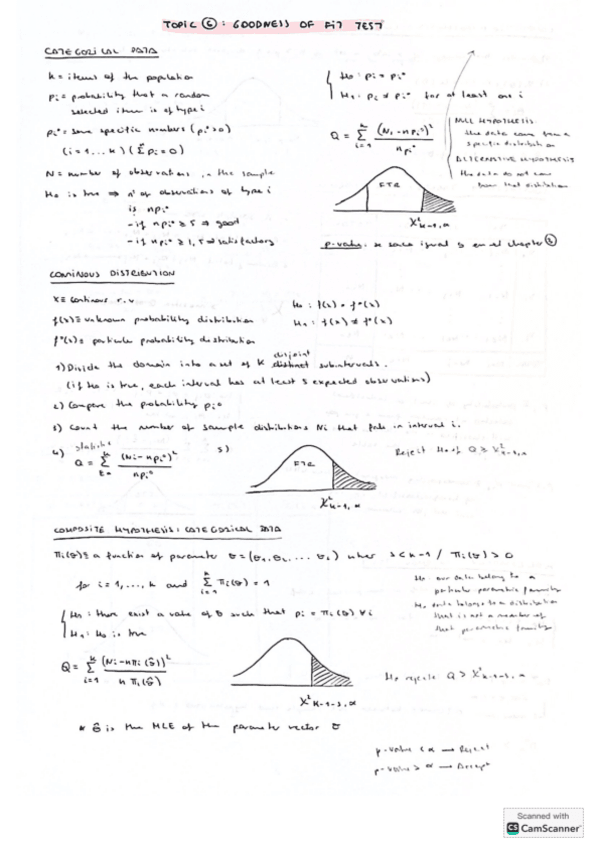 TOPIC 6: GOODNESS OF FIT TEST
CATEGORICAL DATA
k = items of the population
pi = probability that a random
selected item is of type i
pi° = some specific numbers (pi° > 0)
(i = 1 ... k) (Σ pi = 0)
N = number of observations in the sample
Ho is true ⇒ nº of observations of type i
is npi°
- if npi° ≥ 5 ⇒ good
- if npi° ≥ 1,5 ⇒ satisfactory
Ho: pi = pi°
H1: pi ≠ pi° for at least one i
Q = Σ (Ni - npi°)² / npi°
i=1
k
NULL HYPOTHESIS
the data come from a
specific distribution
ALTERNATIVE HYPOTHESIS
the data do not come
from that distribution
FTR
X²k-1,α
p-value: se saca igual q en el chapter
CONTINOUS DISTRIBUTION
X ≡ continous r.v
f(x) ≡ unknown probability distribution
f°(x) ≡ particular probability distribution
Ho: f(x) = f°(x)
H1: f(x) ≠ f°(x)
disjoint
1) Divide the domain into a set of k distinct subintervals.
(if Ho is true, each interval has at least 5 expected observations)
2) Compare the probability pi°
3) Count the number of sample distributions Ni that fals in interval i.
4) statistic
Q = Σ (Ni - npi°)² / npi°
5)
FTR
X²k-1,α
Reject Ho if Q ≥ X²k-1,α
COMPOSITE HYPOTHESIS: CATEGORICAL DATA
πi(θ) ≡ a function of parameter θ = (θ1, θ2, ... θs) wher s < k-1 / πi(θ) > 0
for i = 1, ..., k and Σ πi(θ) = 1
i=1
k
Ho: there exist a value of θ such that pi = πi(θ) ∀i
H1: Ho is true
Ho: our data belong to a
particular parametric family
H1: data belongs to a distribution
that is not a member of
that parametric family
Q = Σ (Ni - nπi(θ̂))² / nπi(θ̂)
i=1
k
X²k-1-s,α
Ho rejects Q > X²k-1-s,α
* θ̂ is the MLE of the parameter vector θ
p-value < α → Reject
p-value > α → Accept
Scanned with
CS CamScanner